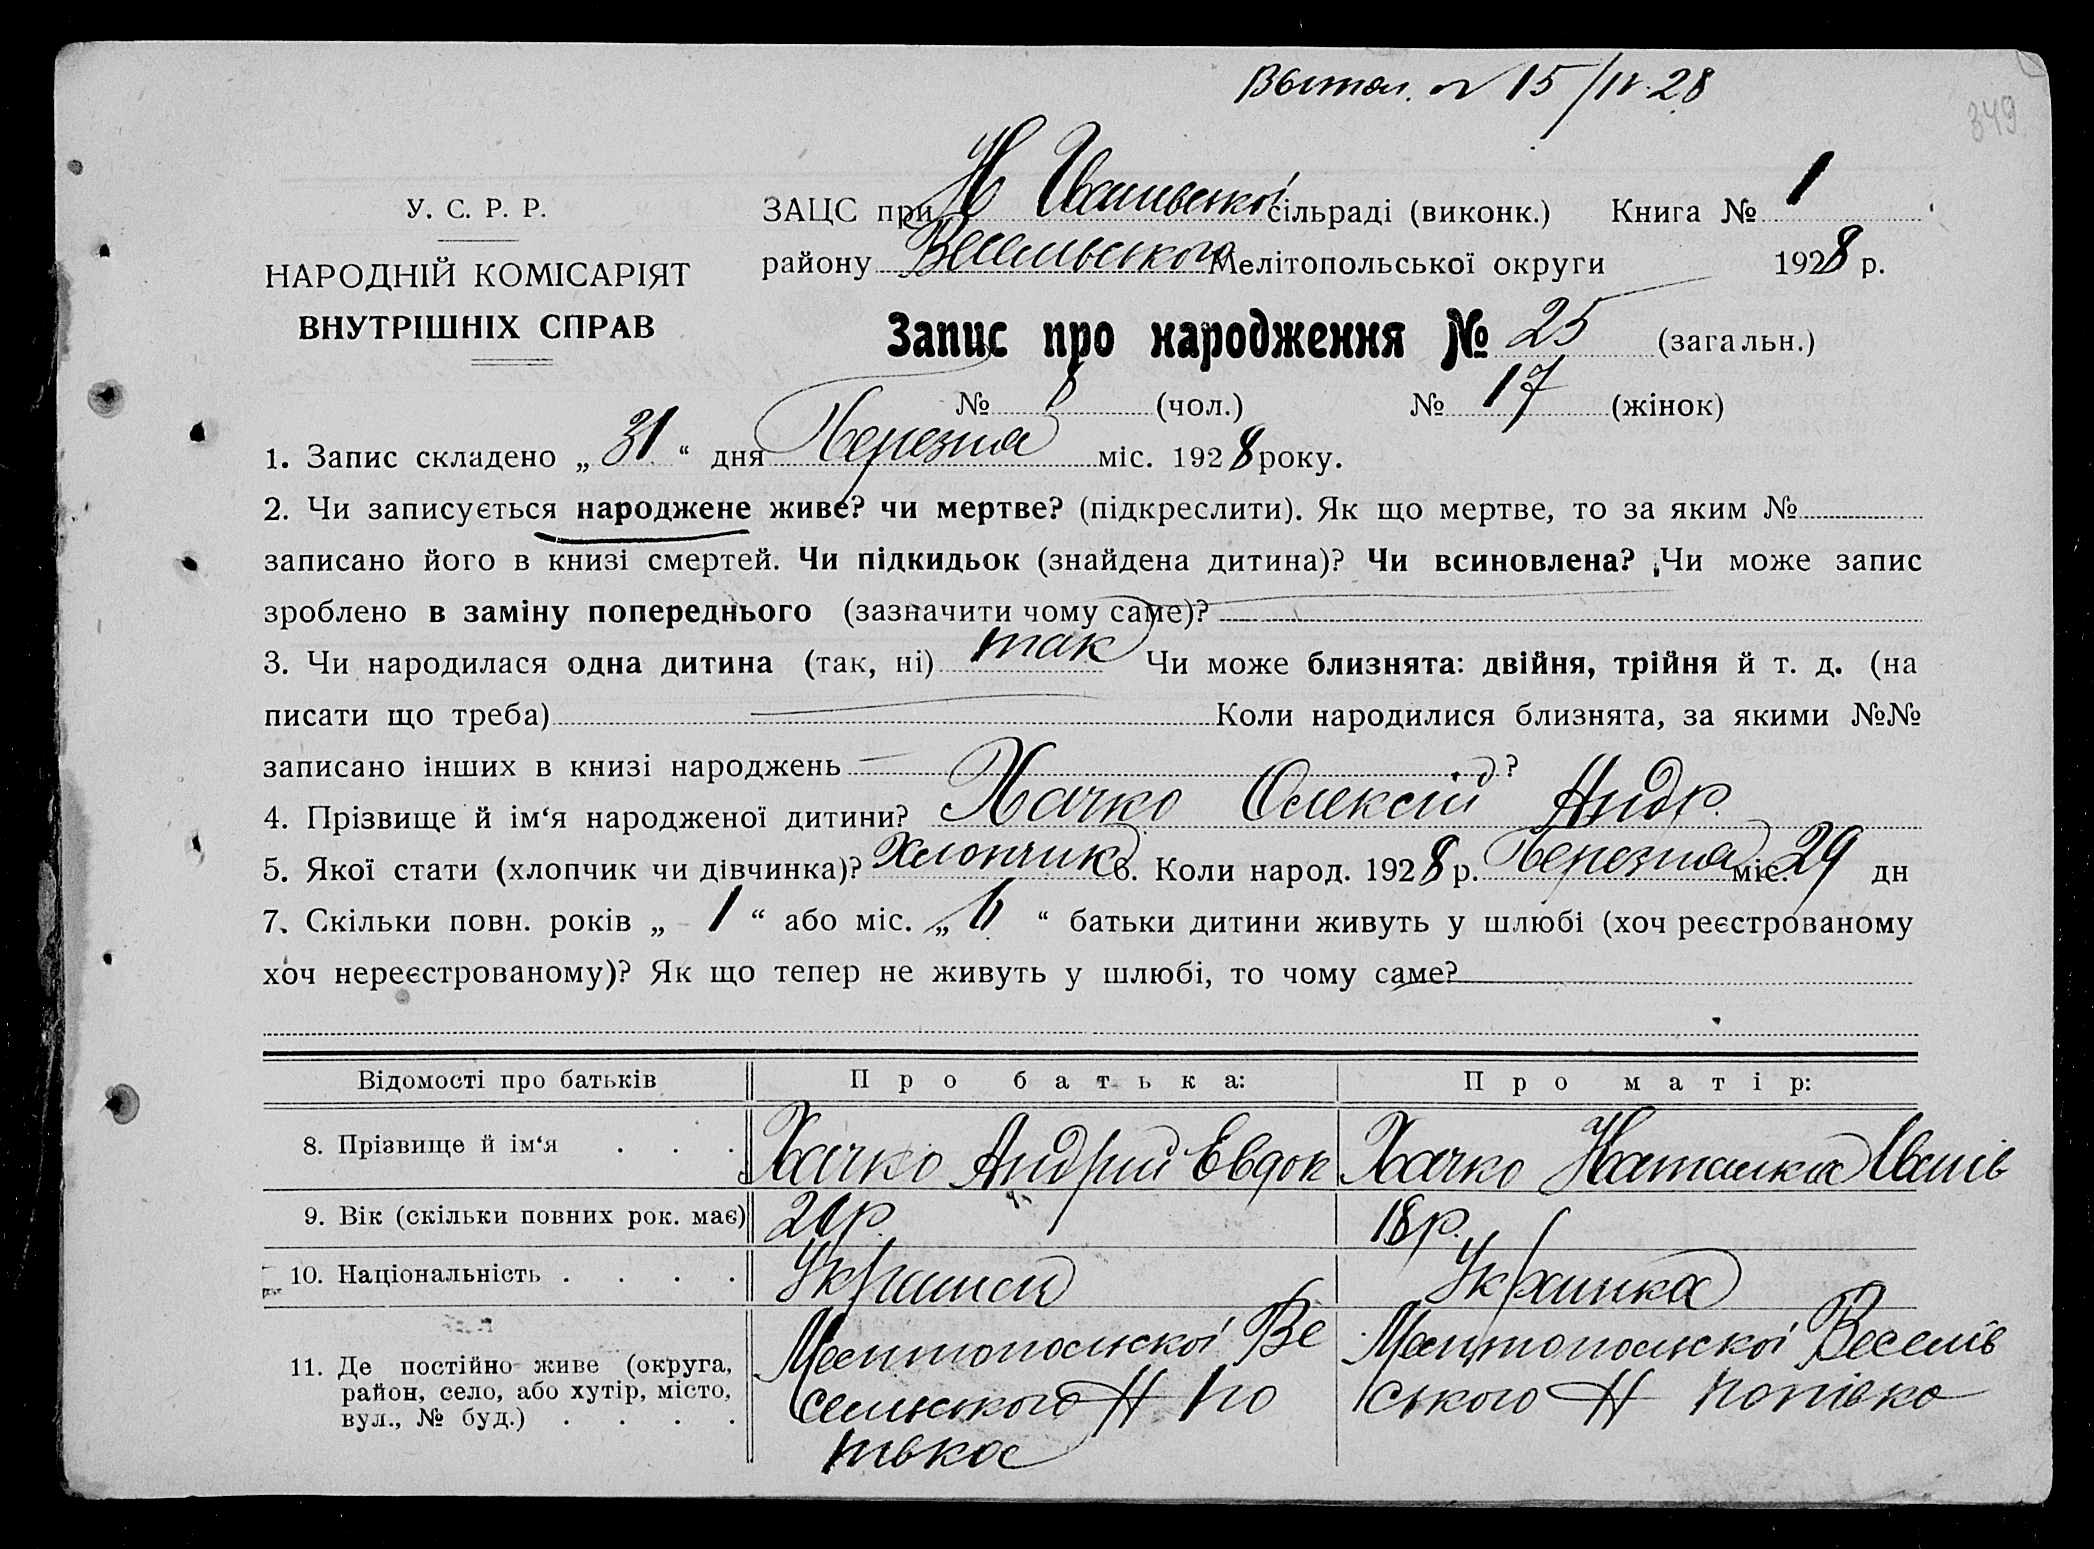 15/IV.28
349
У. С. Р. Р.
НАРОДНІЙ КОМІСАРІЯТ
ВНУТРІШНІХ СПРАВ
ЗАЦС при Н сільраді (виконк.) Книга № 1
району Весельського Мелітопольської округи 1928 р.
Запис про народження № 25 (загальн.)
№ 8 (чол.) № 17 (жінок)
1. Запис складено „ 31 “ дня Березня міс. 1928 року.
2. Чи записується народжене живе? чи мертве? (підкреслити). Як що мертве, то за яким №
записано його в книзі смертей. Чи підкидьок (знайдена дитина)? Чи всиновлена? Чи може запис
зроблено в заміну попереднього (зазначити чому саме)?
3. Чи народилася одна дитина (так, ні) так Чи може близнята: двійня, трійня й т. д. (на
писати що треба) Коли народилися близнята, за якими №№
записано інших в книзі народжень ?
4. Прізвище й ім‘я народженої дитини? Хачко Олексій Андр.
5. Якої стати (хлопчик чи дівчинка)? Хлопчик 6. Коли народ. 1928 р. Березня міс. 29 дн
7. Скільки повн. років „ 1 “ або міс. „ 6 “ батьки дитини живуть у шлюбі (хоч реєстрованому
хоч нереєстрованому)? Як що тепер не живуть у шлюбі, то чому саме?
Відомості про батьків Про батька: Про матір:
8. Прізвище й ім‘я . . . Хачко Андрій Евдок Хачко Наталка Іванів
9. Вік (скільки повних рок. має) 20р. 18р.
10. Національність . . . . Українец Українка
11. Де постійно живе (округа, район, село, або хутір, місто, вул., № буд.) . . . .
Мелітопольскої Ве
сельського Н По
півка
Мелітопольскої Веселів
ського Н Попівка